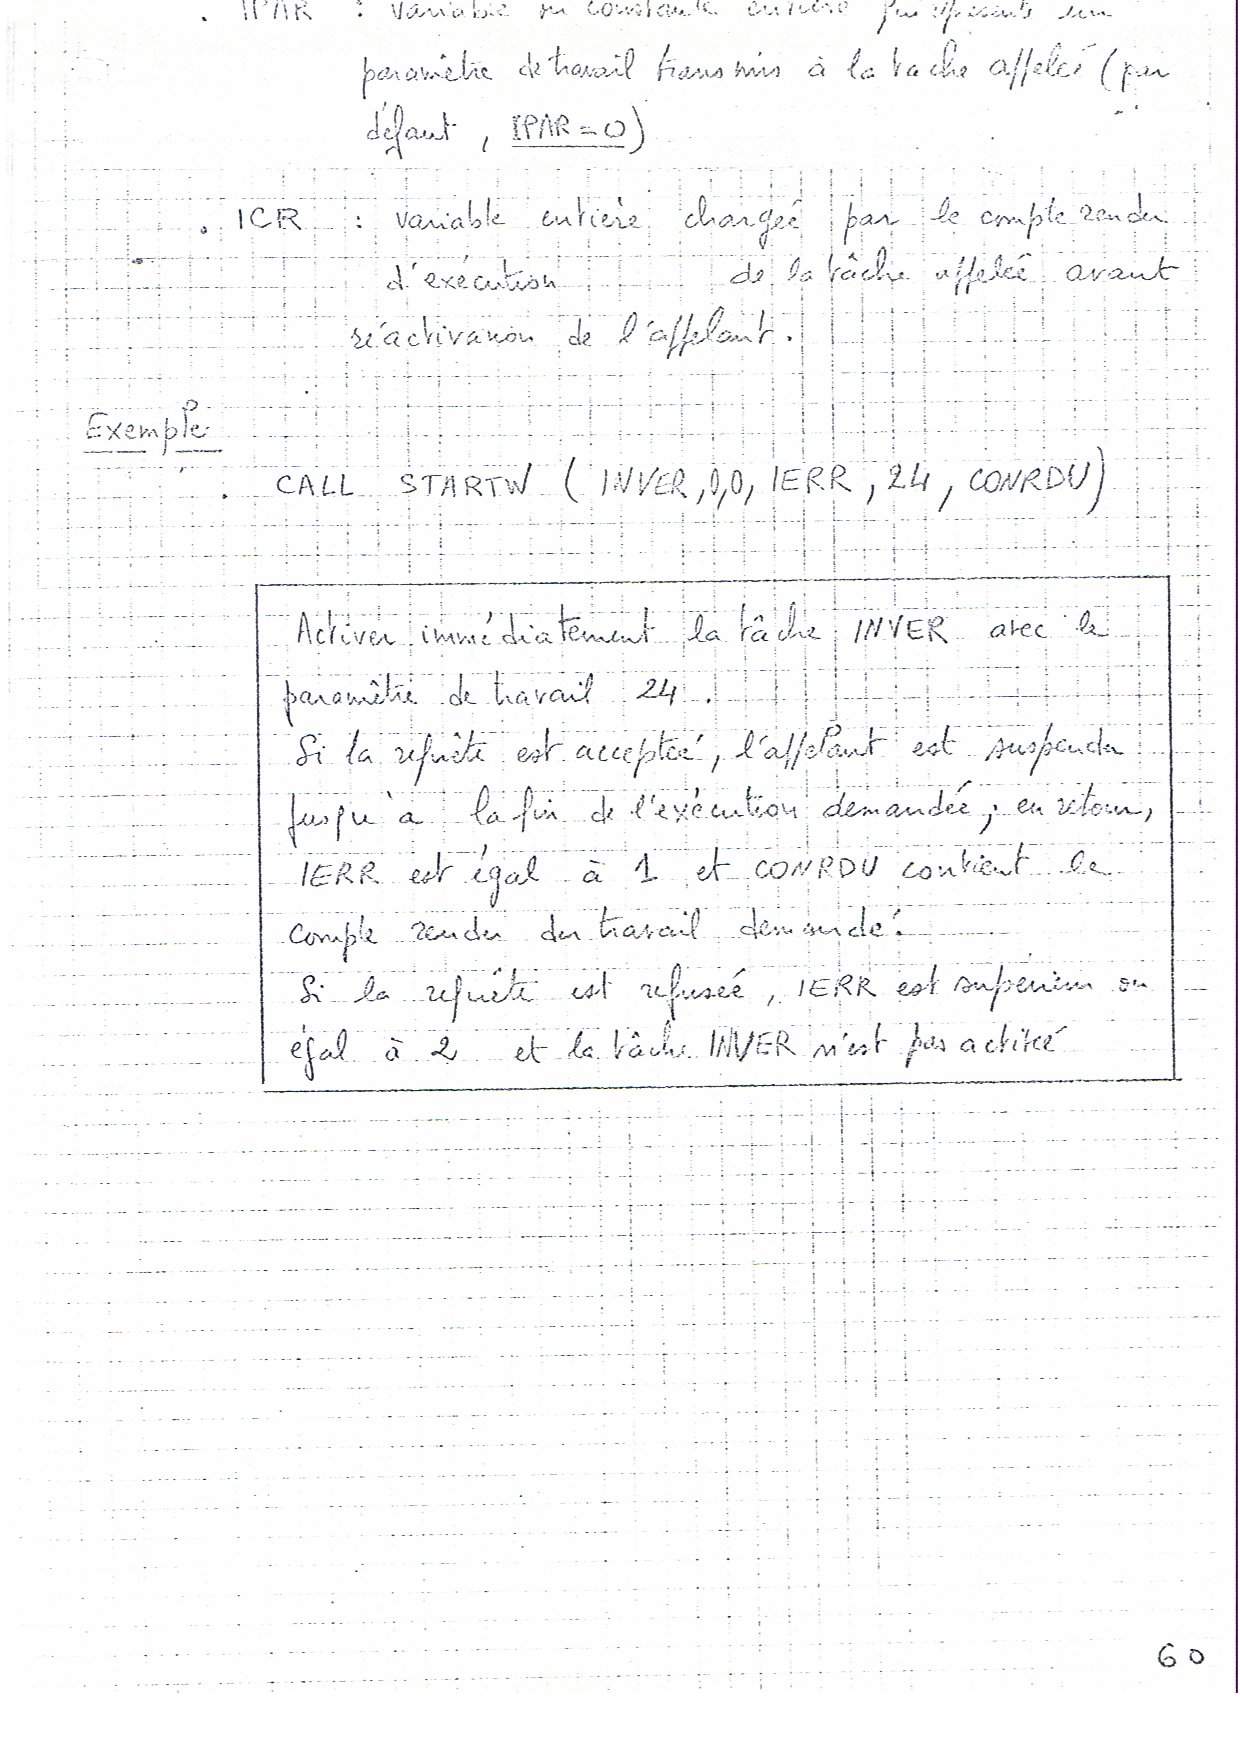 . IPAR : variable ou constante entière qui représente un
paramètre de travail transmis à la tâche appelée (par
défaut, IPAR = 0)
. ICR : variable entière chargée par le compte rendu
d'exécution de la tâche appelée avant
réactivation de l'appelant.
Exemple
. CALL STARTW ( INVER,0,0, IERR, 24, CONRDU)
Activer immédiatement la tâche INVER avec le
paramètre de travail 24.
Si la requête est acceptée, l'appelant est suspendu
jusqu'à la fin de l'exécution demandée; en retour,
IERR est égal à 1 et CONRDU contient le
compte rendu du travail demandé.
Si la requête est refusée, IERR est supérieur ou
égal à 2 et la tâche INVER n'est pas activée
60